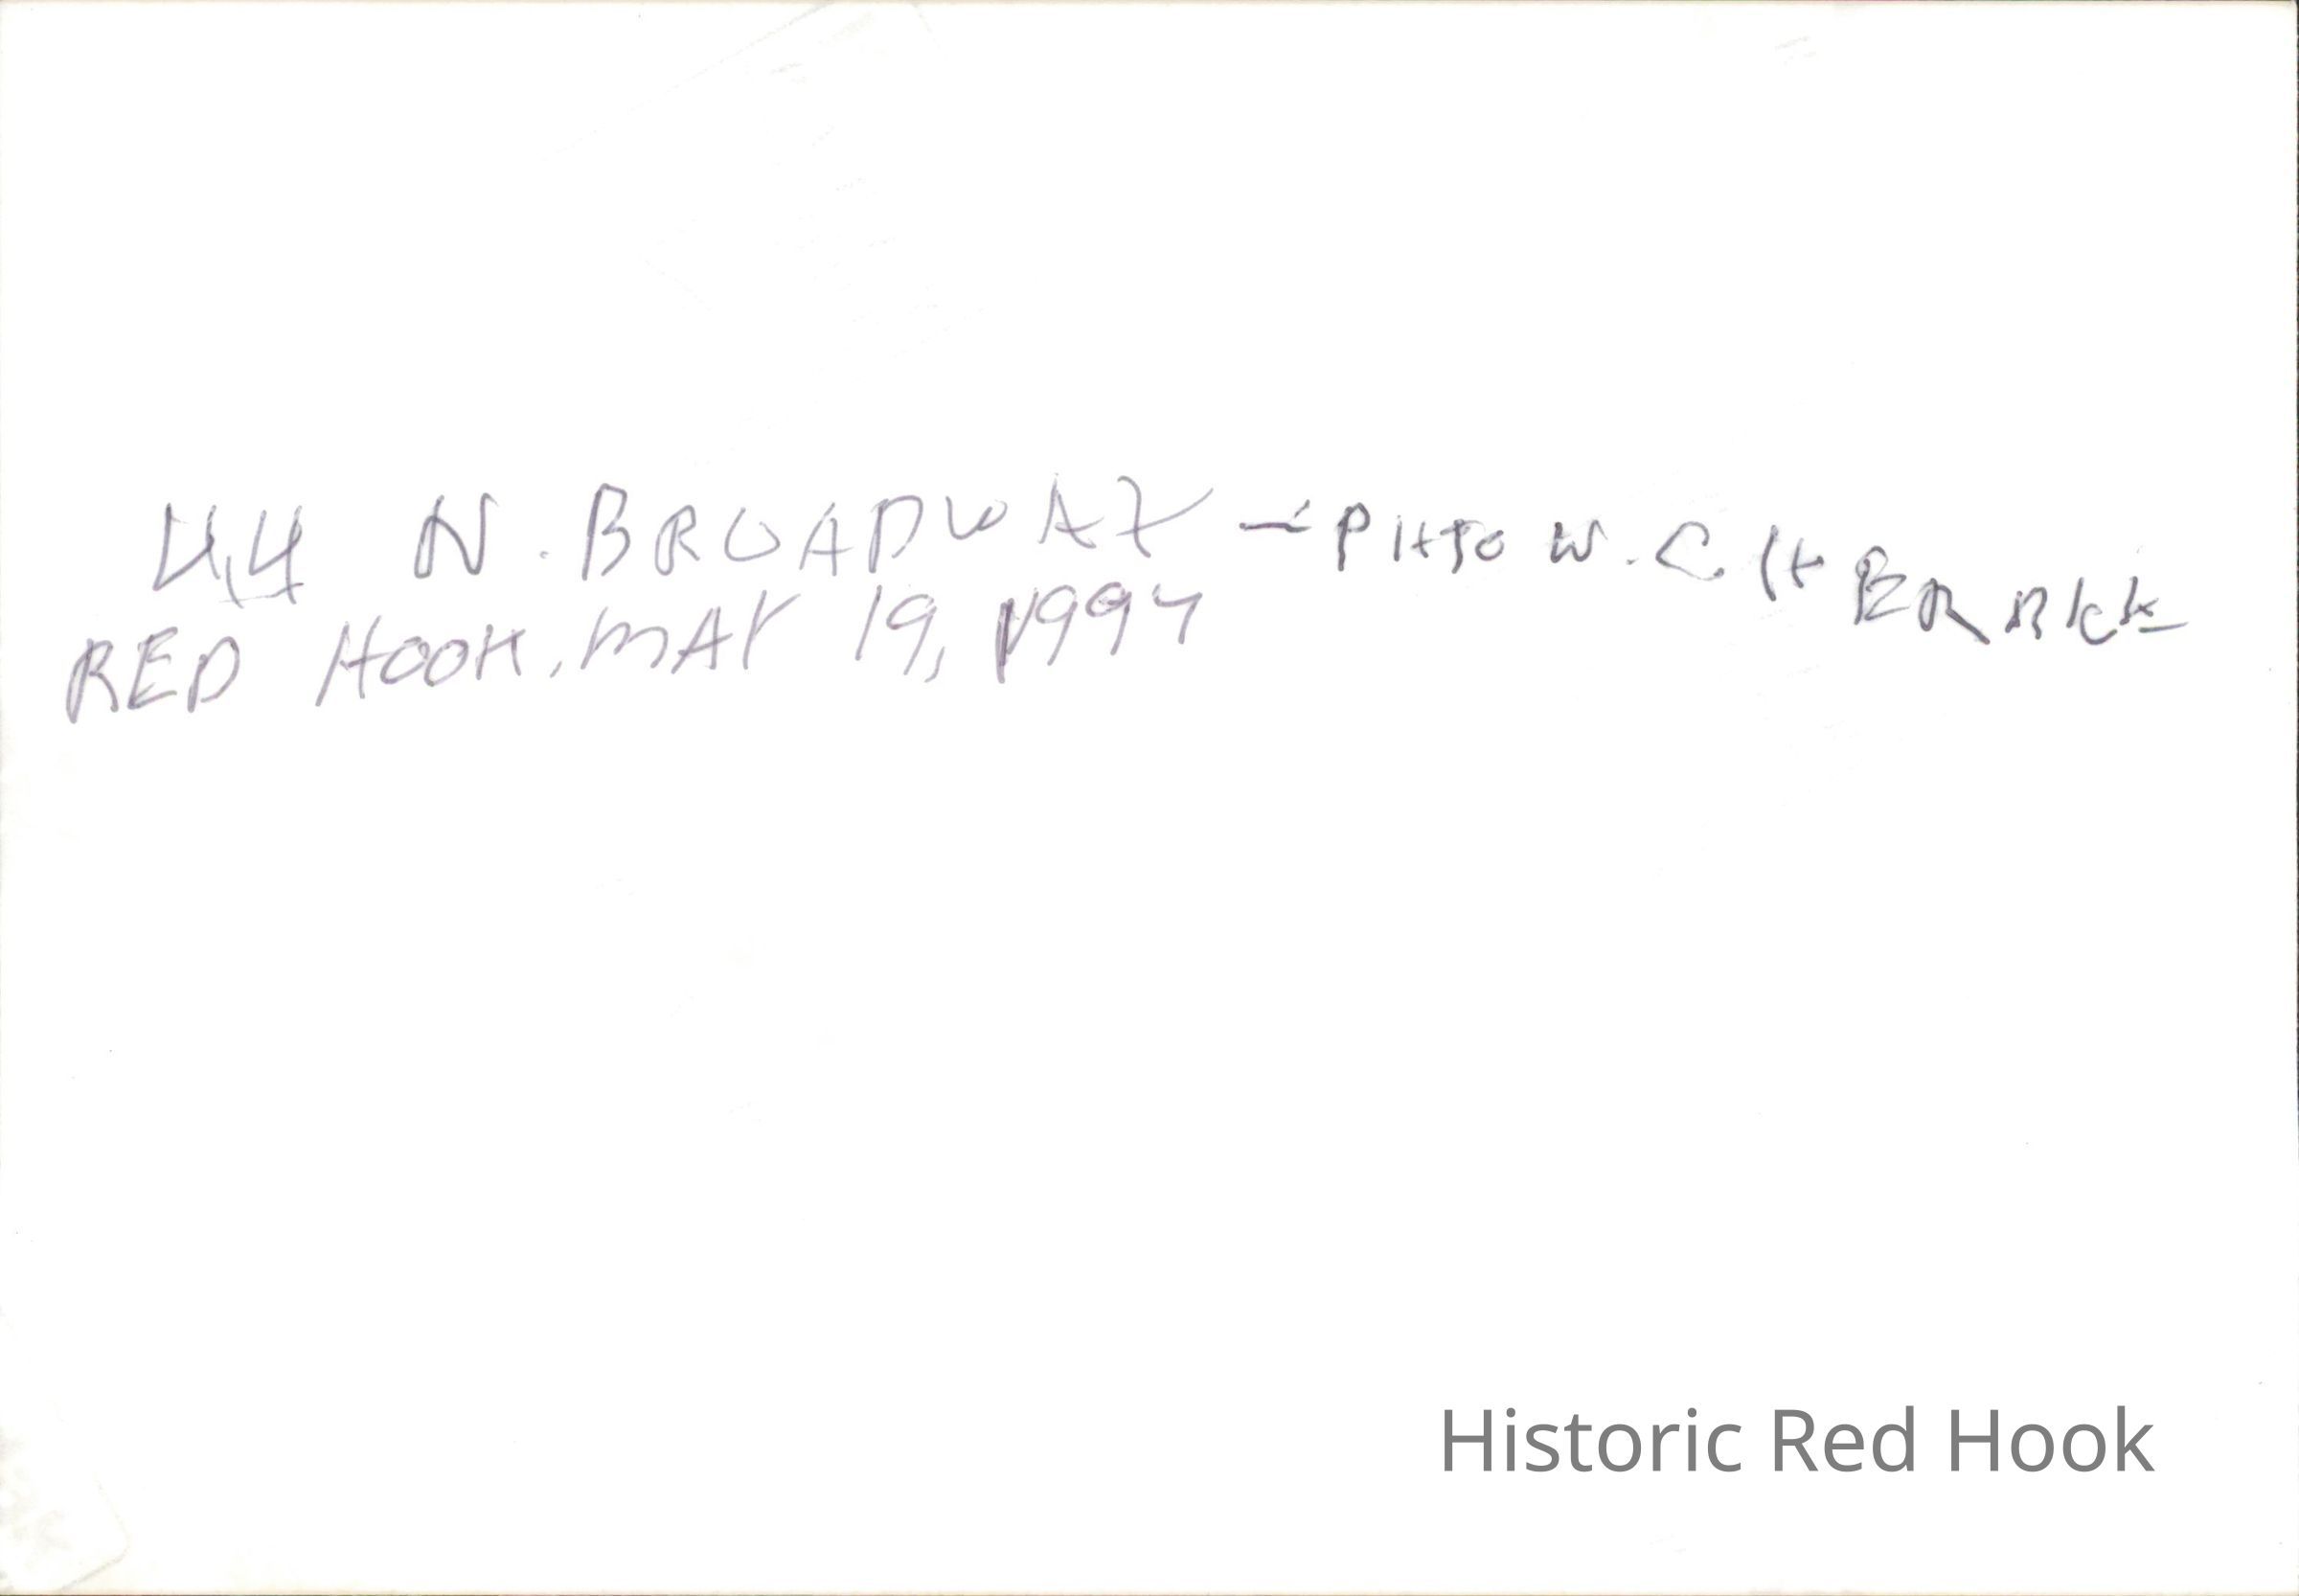 44 N. BROADWAY - PHTO W. C. HERRICK
RED HOOK, MAY 19, 1994
Historic Red Hook